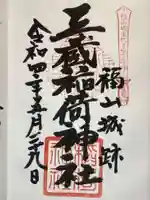 福山城跡
三蔵稲荷神社
令和四年五月二十九日